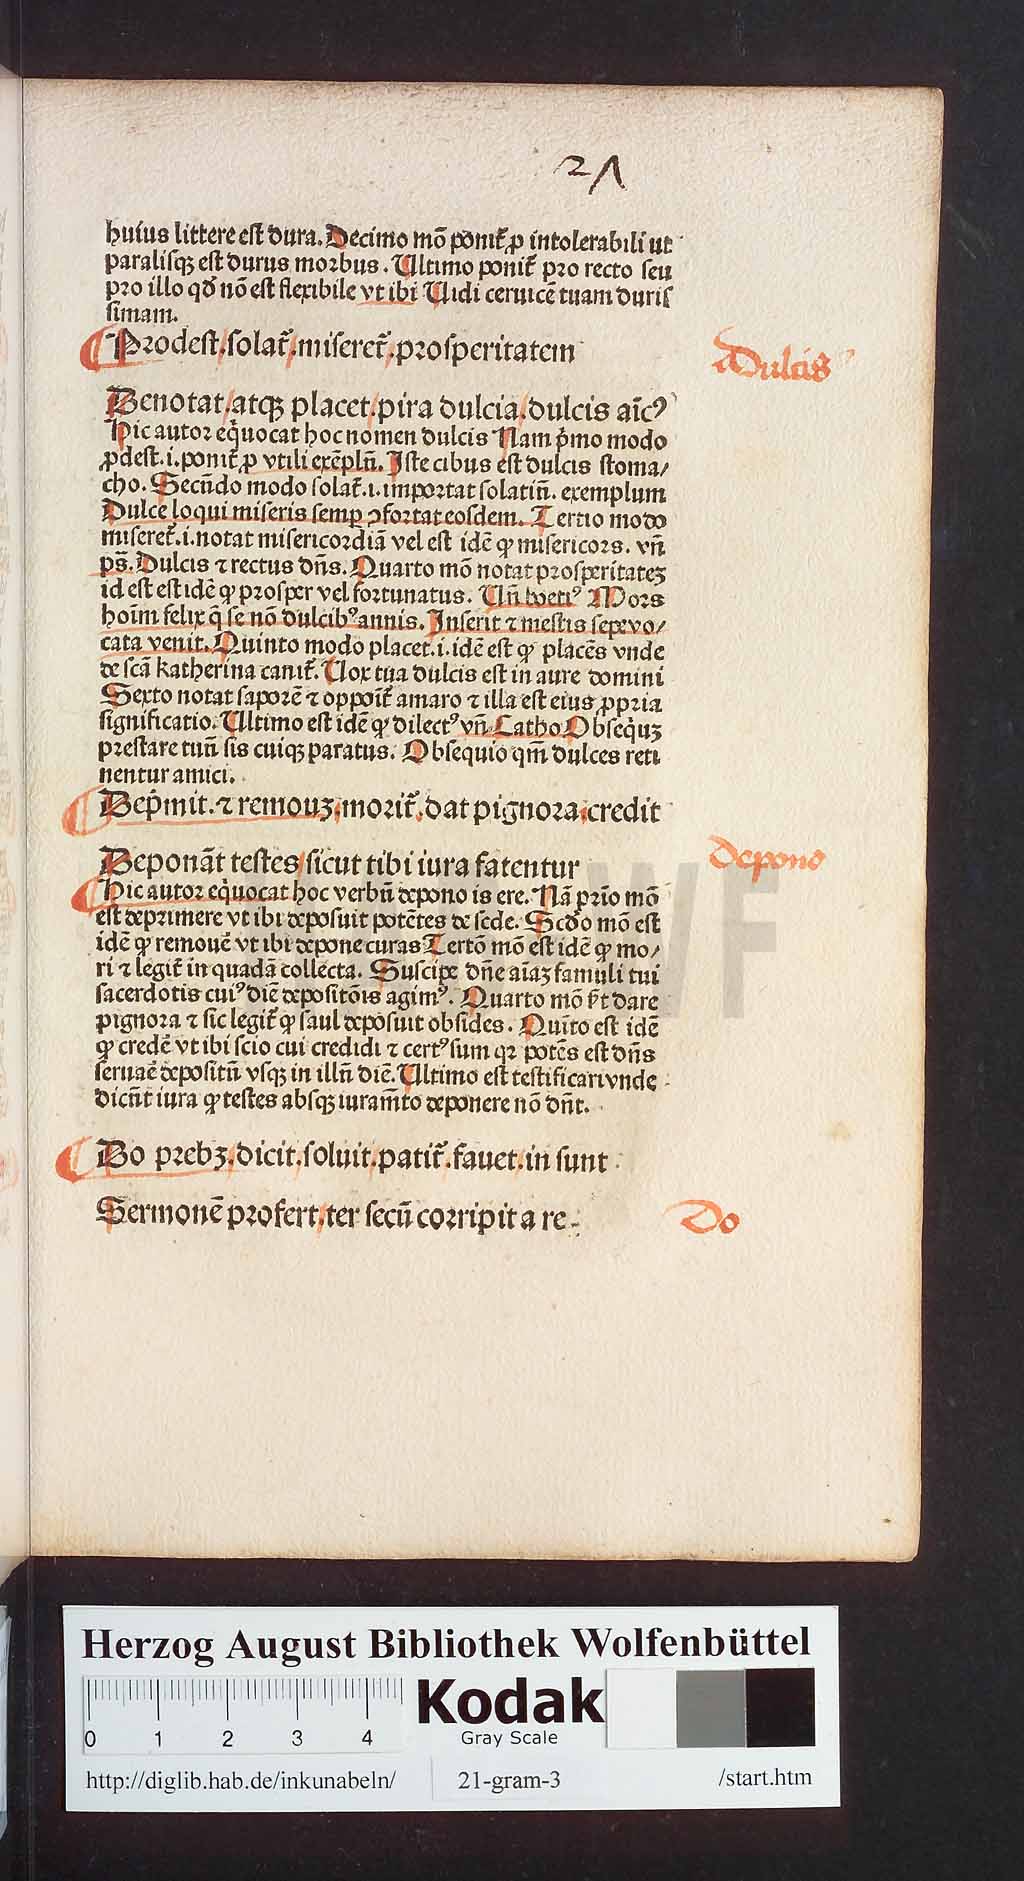 21
huius littere est dura. Decimo mō poniť ꝓ intolerabili ut
paralisqꝫ est durus morbus. Ultimo poniť pro recto seu
pro illo qđ nō est flexibile vt ibi Uidi ceruicē tuam duris
simam.
Prodest/solať/misereť/prosperitatem
Dulcis
Denotat/atqꝫ placet/pira dulcia/dulcis aīcꝰ
Hic autor eq̇uocat hoc nomen dulcis Nam p̄mo modo
ꝓdest.i.poniť ꝓ vtili exēplū. Iste cibus est dulcis stoma/
cho. Secūdo modo solať.i.importat solatiū. exemplum
Dulce loqui miseris semꝑ ꝯfortat eosdem. Tertio modo
misereť.i.notat misericordiā vel est idē ꝙ misericors. vñ
pš. Dulcis ⁊ rectus dñs. Quarto mō notat prosperitateꝫ
id est est idē ꝙ prosper vel fortunatus. Uñ boetiꝰ Mors
hoīm felix q̄ se nō dulcibꝰ annis. Inserit ⁊ mestis sepe vo/
cata venit. Quinto modo placet.i.idē est ꝙ placēs vnde
de scā katherina caniť. Uox tua dulcis est in aure domini
Sexto notat saporē ⁊ oppoīť amaro ⁊ illa est eius ꝓpria
significatio. Ultimo est idē ꝙ dilectꝰ vñ Catho Obseq̇uꝫ
prestare tuū sis cuiqꝫ paratus. Obsequio qm̄ dulces reti
nentur amici.
Dep̄mit.⁊ remouꝫ.moriť.dat pignora.credit
Deponāt testes/sicut tibi iura fatentur
depono
Hic autor eq̇uocat hoc verbū depono is ere. Nā prīo mō
est deprimere vt ibi deposuit potētes de sede. Scđo mō est
idē ꝙ remouē vt ibi depone curas Tertō mō est idē ꝙ mo/
ri ⁊ legiť in quadā collecta. Suscipe dñe aīaꝫ famuli tui
sacerdotis cuiꝰ diē depositōis agimꝰ. Quarto mō ꝟt dare
pignora ⁊ sic legiť ꝙ saul deposuit obsides. Quīto est idē
ꝙ credē vt ibi scio cui credidi ⁊ certꝰ sum qꝛ potēs est dñs
seruaē depositū vsqꝫ in illū diē. Ultimo est testificari vnde
dicūt iura ꝙ testes absqꝫ iuram̄to deponere nō dñt.
Do prebꝫ.dicit.soluit.patiť.fauet.in sunt
Sermonē profert/ter secū corripit a re
Do
Herzog August Bibliothek Wolfenbüttel
0 1 2 3 4
Kodak
Gray Scale
http://diglib.hab.de/inkunabeln/ 21-gram-3 /start.htm